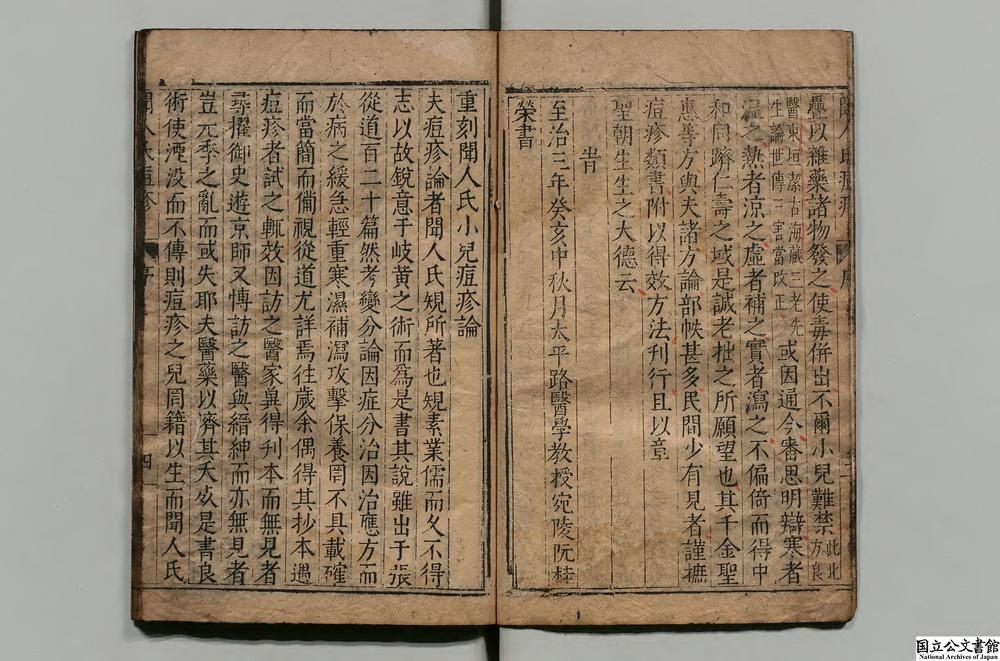 疊以雜藥諸物發之使毒併出不爾小兒難禁此北方良
醫東垣潔古海藏三老先生論世傳二害當改正或因通今審思明辯寒者
溫之熱者涼之虛者補之實者瀉之不偏倚而得中
和同躋仁壽之域是誠老拙之所願望也其千金聖
惠等方與夫諸方論部帙甚多民間少有見者謹摭
痘疹類書附以得效方法刊行且以章
聖朝生生之大德云
旹
至治三年癸亥中秋月太平路醫學教授宛陵阮桂
榮書
重刻聞人氏小兒痘疹論
夫痘疹論者聞人氏規所著也規素業儒而久不得
志以故銳意于岐黃之術而為是書其說雖出于張
從道百二十篇然考變分論因症分治因治應方而
於病之緩急輕重寒濕補瀉攻擊保養罔不具載確
而當簡而備視從道尤詳焉往歲余偶得其抄本遇
痘疹者試之輒效因訪之醫家兾得刋本而無見者
尋擢御史遊京師又慱訪之醫與縉紳而亦無見者
豈元季之亂而或失耶夫醫藥以濟其夭必是書良
術使湮没而不傳則痘疹之兒罔籍以生而聞人氏
聞人氏痘疹
序
四
国立公文書館
National Archives of Japan